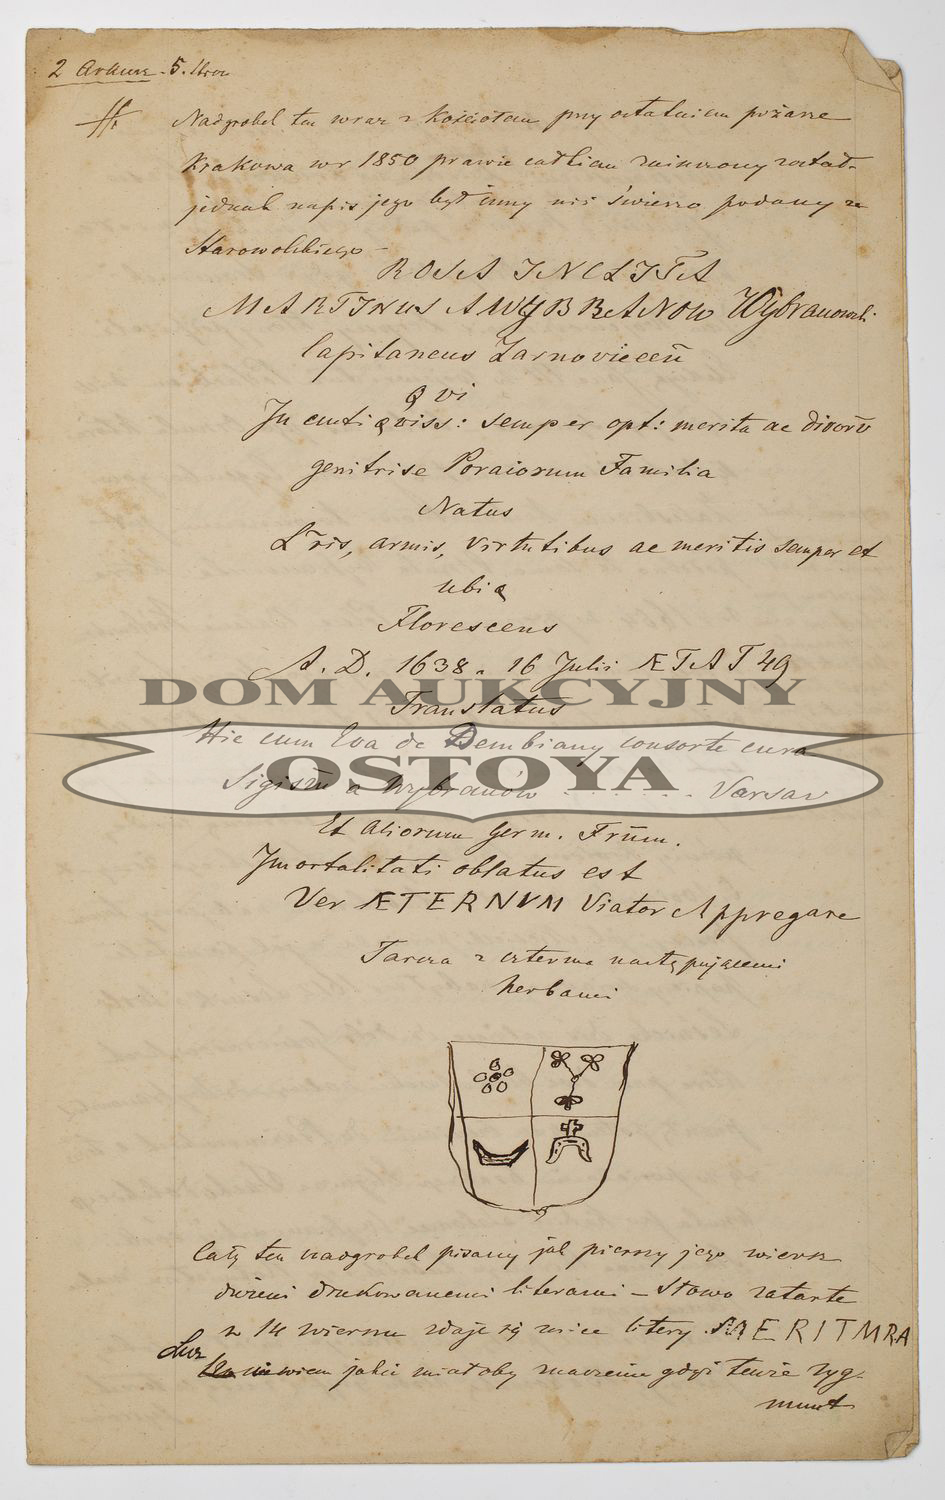 2 Arkusz. 5.
Nadgrobek ten wraz z Kościołem przy ostatniem pożarze
Krakowa w r 1850 prawie całkiem zniszczony został-
jednak napis jego był inny niż świeżo podany ze
Starowolskiego -
ROSA INCLITA
MARTINUS A WYBRANOW Wybranowski
Capitaneus Zarnoviecen̄
Q VI
In antiqviss: semper opt: merita ac divorū
genitrise Poraiorum Familia
Natus
Lr̃is, armis, virtutibus ac meritis semper et
ubiq
Florescens
A. D. 1638. 16 Julii ÆTAT 49
Translatus
Hic cum Eva de Dembiany consorte cura
Sigism̄ a Wybranow . . . . . . Varsav
Et Aliorum Germ. Frūm.
Imortalitati oblatus est
Ver ÆTERNVM Viator Appregare
Tarcza z czterma następującemi
herbami
Cały ten nadgrobek pisany jak pierszy jego wiersz
dużemi drukowanemi literami - Słowo zatarte
w 14 wierszu zdaje się mice litery MERITMRA
Lecz
niewiem jakie miałoby znaczenie gdyż tenże Zyg-
munt
DOM AUKCYJNY
OSTOYA